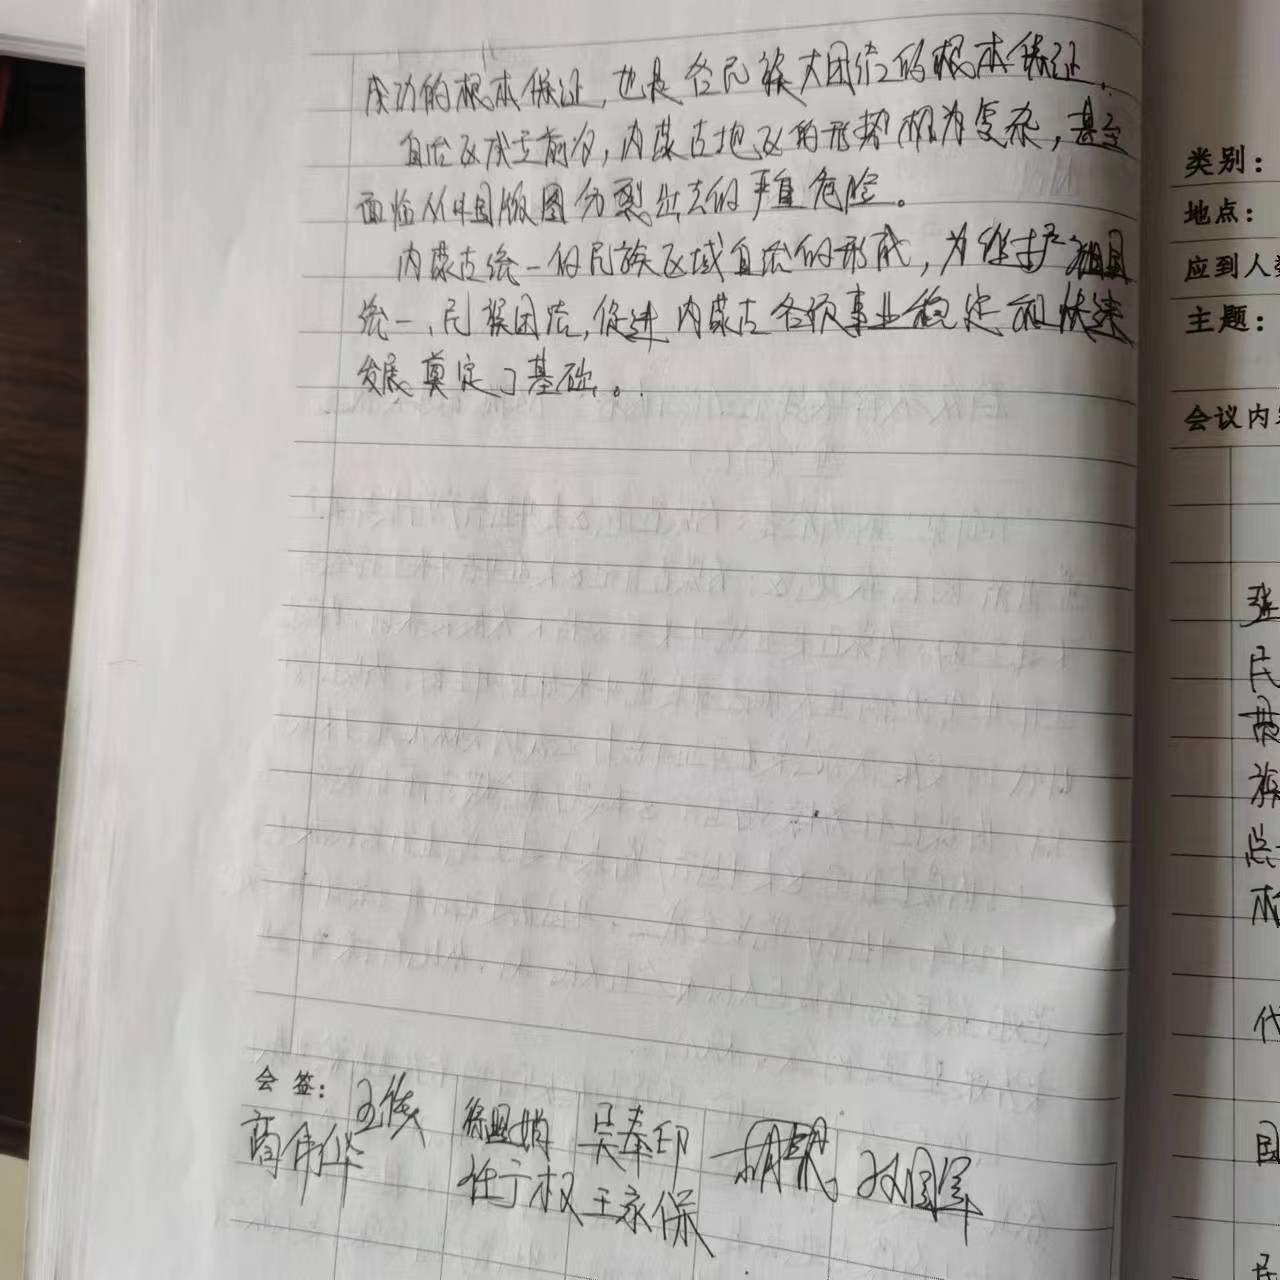 成功的根本保证,也是各民族大团结的根本保证.
自治区成立前夕,内蒙古地区的形势极为复杂,甚至
面临从中国版图分裂出去的严重危险。
内蒙古统一的民族区域自治的形成,为维护祖国
统一、民族团结,促进内蒙古各项事业稳定和快速
发展奠定了基础。
会 签:
商伟华
徐思娟
任宁权
吴奉印
王家保
类别:
地点:
应到人
主题:
会议内
民
族
总
代
国